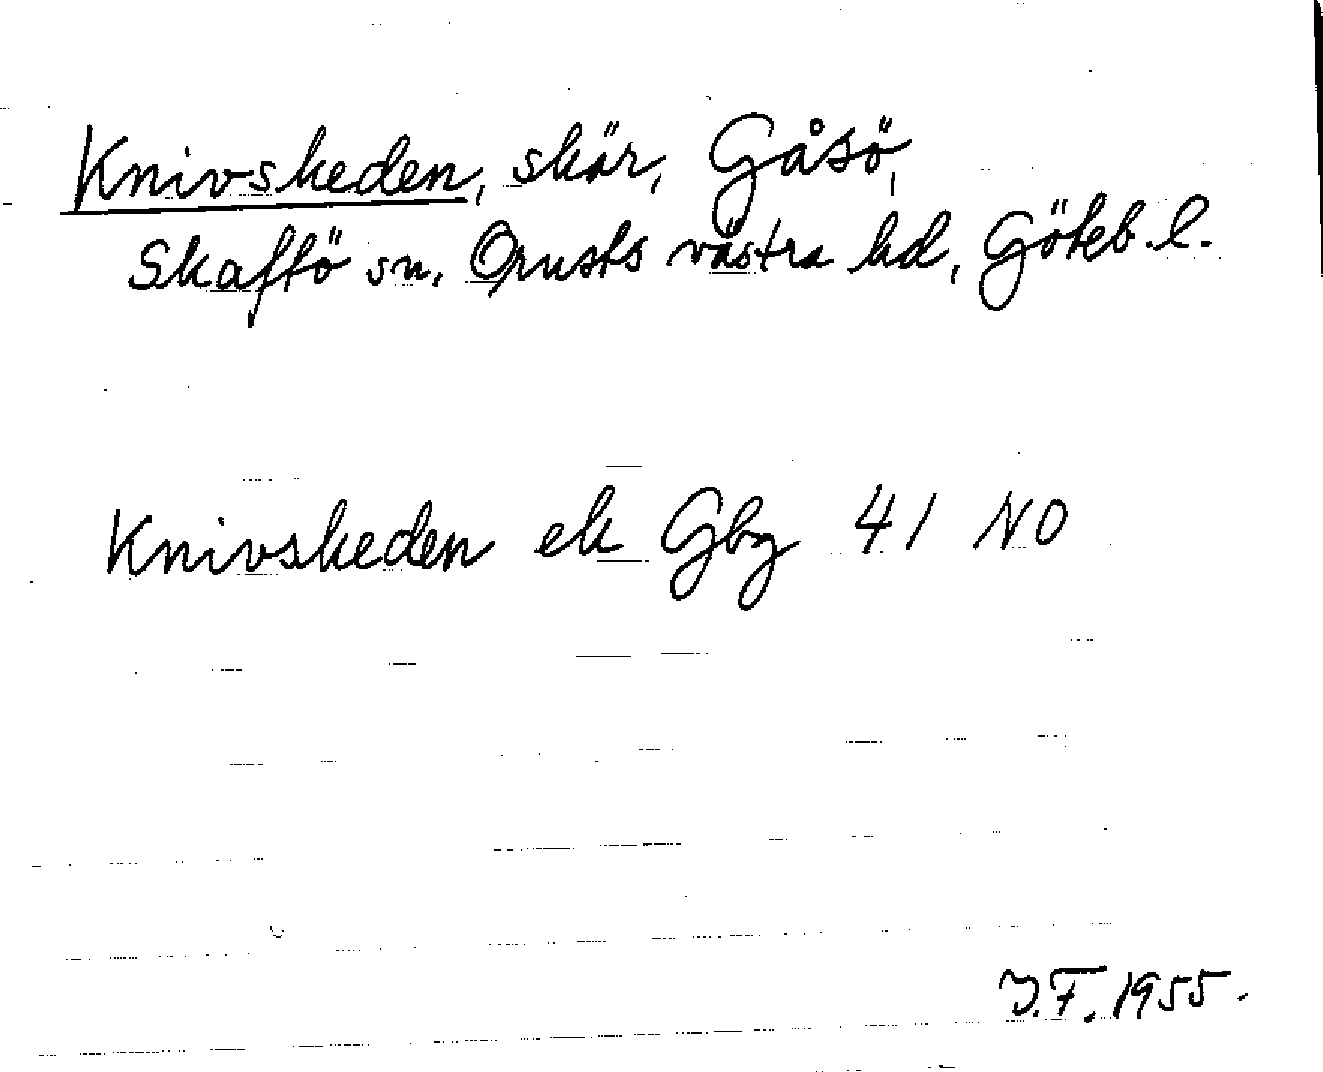 Knivskeden, skär, Gåsö,
Skaftö sn. Orusts västra hd, Göteb. l.
Knivskeden ek Gbg 41 NO
J.F. 1955.